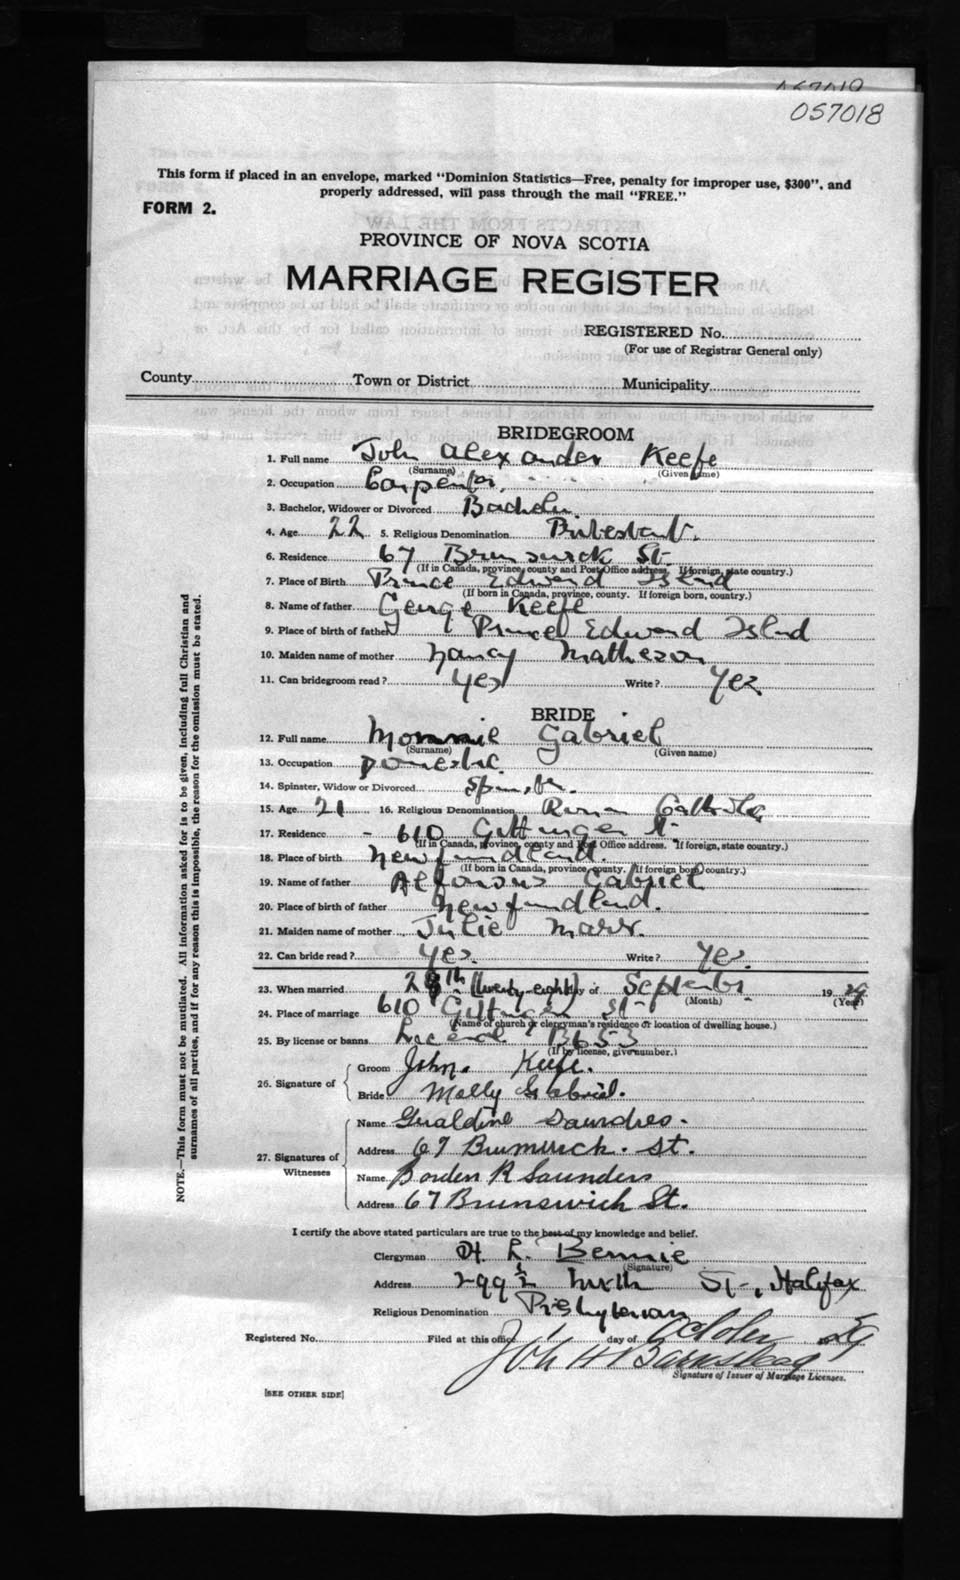 057018
This form if placed in an envelope, marked "Dominion Statistics—Free, penalty for improper use, $300", and
properly addressed, will pass through the mail "FREE."
FORM 2.
PROVINCE OF NOVA SCOTIA
MARRIAGE REGISTER
REGISTERED No.
(For use of Registrar General only)
County Town or District Municipality
BRIDEGROOM
1. Full name John Alexander Keefe
(Surname) (Given name)
2. Occupation Carpenter.
3. Bachelor, Widower or Divorced Bachelor.
4. Age 22 5. Religious Denomination Protestant.
6. Residence 67 Brunswick St-
(If in Canada, province, county and Post Office address. If foreign, state country.)
7. Place of Birth Prince Edward Island
(If born in Canada, province, county. If foreign born, country.)
8. Name of father George Keefe
9. Place of birth of father Prince Edward Island
10. Maiden name of mother Nancy Matheson
11. Can bridegroom read? Yes Write? Yes
BRIDE
12. Full name Mommie Gabriel
(Surname) (Given name)
13. Occupation Domestic.
14. Spinster, Widow or Divorced Spinster.
15. Age 21 16. Religious Denomination Roman Catholic
17. Residence - 610 Gottingen St-
(If in Canada, province, county and Post Office address. If foreign, state country.)
18. Place of birth Newfoundland.
(If born in Canada, province, county. If foreign born, country.)
19. Name of father Alfonsus Gabriel
20. Place of birth of father Newfoundland.
21. Maiden name of mother Julie Marr.
22. Can bride read? Yes. Write? Yes.
23. When married 28th (twenty-eight) day of September. 1929
(Month) (Year)
24. Place of marriage 610 Gottingen St-
(Name of church or clergyman's residence or location of dwelling house.)
25. By license or banns License B653
(If by license, give number.)
26. Signature of Groom John. Keefe.
Bride Molly Gabriel.
27. Signatures of Witnesses Name Geraldine Saundres.
Address 67 Brunswick. St.
Name Borden R Saunders
Address 67 Brunswick St.
I certify the above stated particulars are true to the best of my knowledge and belief.
Clergyman H. L. Bennie
(Signature)
Address 299½ North St-, Halifax
Religious Denomination Presbyterian
Registered No. Filed at this office 1 day of October 29
John H Barnstead
Signature of Issuer of Marriage Licenses.
[SEE OTHER SIDE]
NOTE.—This form must not be mutilated. All information asked for is to be given, including full Christian and
surnames of all parties, and if for any reason this is impossible, the reason for the omission must be stated.